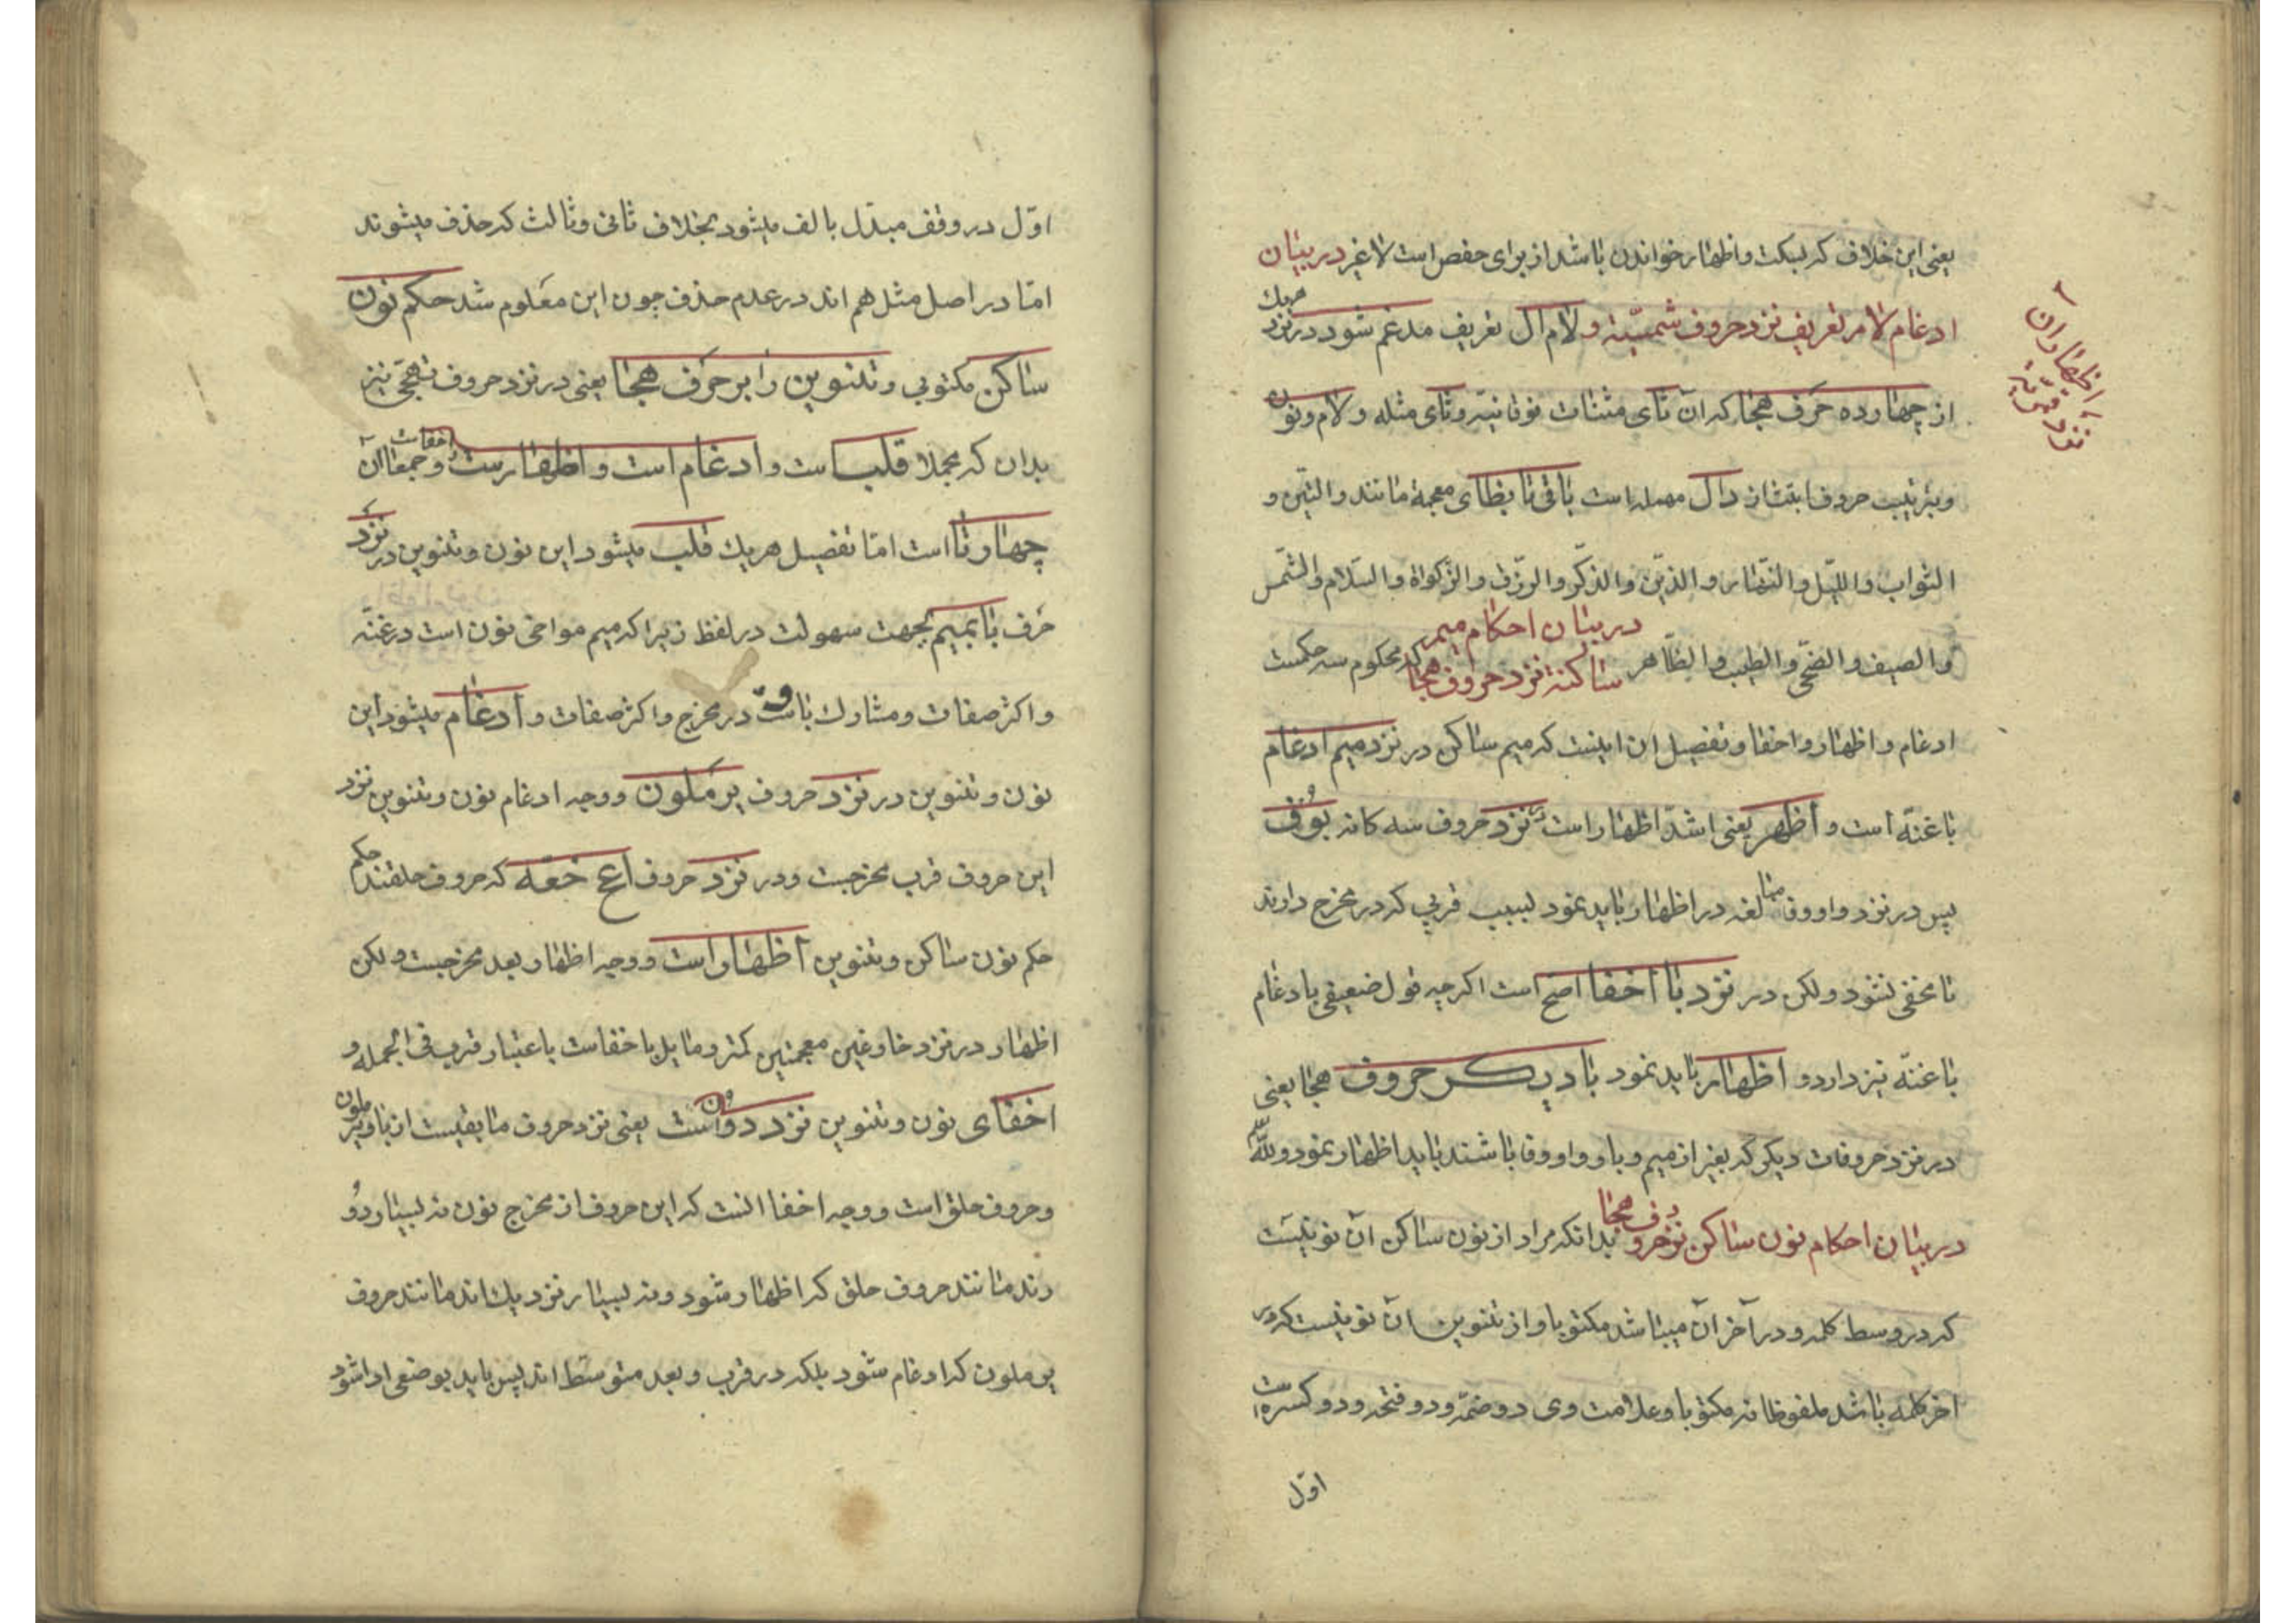 یعنی این خلاف که بسکت و اظهار خواندن باشد از برای حفص است لا غیر در بیان
ادغام لام تعریف نزد حروف شمسیّه و لام ال تعریف مدغم شود در نزد هریك
از چهارده حرف هجا که آن تای مثنات فوقانیّه و ثای مثلثه و لام و نون
و بترتیب حروف ابتث از دال مهمله است باقی تا بظای معجمة مانند والتین و
الثواب واللّیل والنّهار والذین والذّکر والرزق والزکواة والسّلام والشّمس
والصیف والضحّی والطیب والظّاهر در بیان احکام میم ساکنة نزد حروف هجا که محکوم سه حکمست
ادغام و اظهار و اخفا و تفصیل ان اینست که میم ساکن در نزد میم ادغام
با غنّه است و اظهر یعنی اشدّ اظهار است نزد حروف سه کانه بوف
پس در نزد واو و فا مبالغه در اظهار باید نمود بسبب قربی که در مخرج دارند
تا مخفی نشود ولکن در نزد با اخفا اصح است اکرچه قول ضعیفی بادغام
با غنّه نیز دارد و اظهار باید نمود با دیکر حروف هجا یعنی
در نزد حروفات دیکر که بغیر از میم و با و واو و فا باشند باید اظهار نمود
در بیان احکام نون ساکن نزد حروف هجا بدانکه مراد از نون ساکن آن نونیست
که در وسط کلمه و در آخر آن میباشد مکتوبا و از تنوین آن نونیست که در
اخر کلمه باشد ملفوظا نه مکتوبا و علامت وی دو ضمّه و دو فتحه و دو کسره است
اوّل
اظهار ان
نزد
اوّل در وقف مبدّل بالف میشود بخلاف ثانی و ثالث که حذف میشوند
امّا در اصل مثل هم اند در عدم حذف چون این معلوم شد حکم نون
ساکن مکتوبی و تنوین را بر حرف هجا یعنی در نزد حروف تهجّی نیز
بدان که مجملا قلب است و ادغام است و اظهارست و اخفاست و جمعا آن
چهار تا است امّا تفصیل هریك قلب میشود این نون و تنوین در نزد
حرف با بمیم بجهت سهولت در لفظ زیرا که میم مواخی نون است در غنّه
و اکثر صفات و مشارك با است در مخرج و اکثر صفات و ادغام میشود این
نون و تنوین در نزد حروف یرملون و وجه ادغام نون و تنوین نزد
این حروف قرب مخرجست و در نزد حروف اعح خغه که حروف حلقند حکم
حکم نون ساکن و تنوین اظهار است و وجه اظهار بعد مخرجست ولکن
اظهار در نزد خا و غین معجمتین کمتر و مایل باخفاست باعتبار قرب فی الجمله و
اخفای نون و تنوین نزد دون است یعنی نزد حروف ما بقیست از با و یرملون
و حروف حلق است و وجه اخفا انست که این حروف از مخرج نون نه بسیار دو
رند مانند حروف حلق که اظهار شود و نه بسیار نزدیك اند مانند حروف
یرملون که ادغام شود بلکه در قرب و بعد متوسّط اند پس باید بوضعی ادا شود